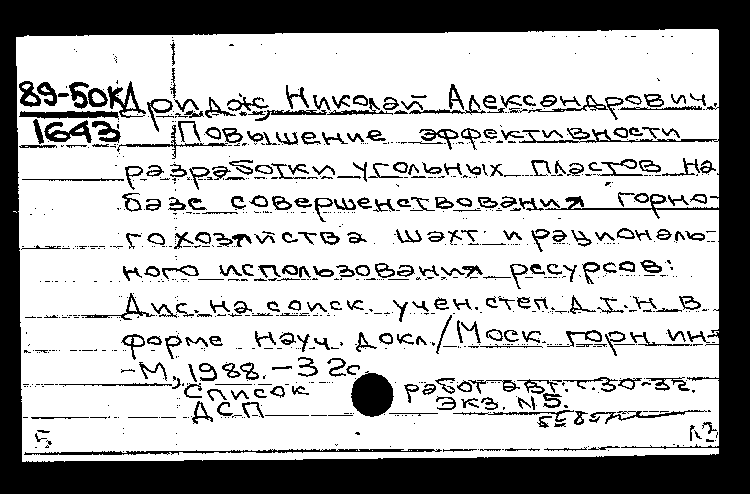 89-50к Дридж Николай Александрович.
1643 Повышение эффективности
разработки угольных пластов на
базе совершенствования горно-
го хозяйства шахт и рациональ-
ного использования ресурсов:
Дис. на соиск. учен. степ. д.т.н. в
форме науч. докл./Моск. горн. ин-т
-М., 1988. - 32с.
Список работ авт.: с.30-32.
ДСП Экз. N5.
5